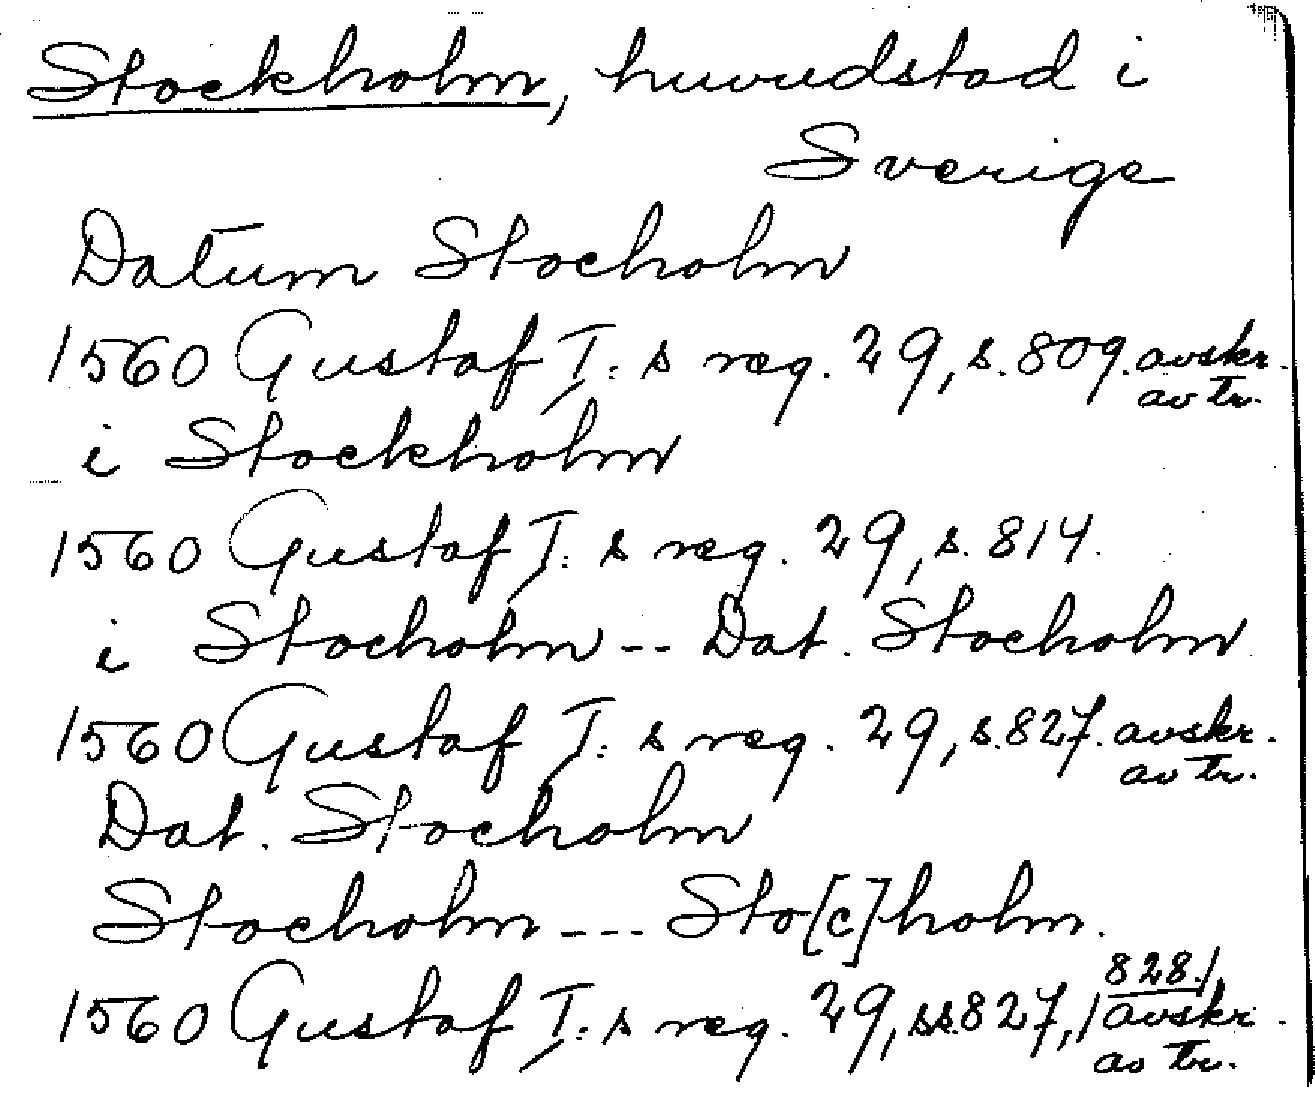 Stockholm, huvudstad i
Sverige
Datum Stocholm
1560 Gustaf I:s reg. 29, s. 809. avskr.
av tr.
i Stockholm
1560 Gustaf I:s reg. 29, s. 814.
i Stocholm -- Dat. Stocholm
1560 Gustaf I:s reg. 29, s. 827. avskr.
av tr.
Dat. Stocholm
Stocholm --- Sto[c]holm.
828./
1560 Gustaf I:s reg. 29, ss. 827, / avskr.
av tr.